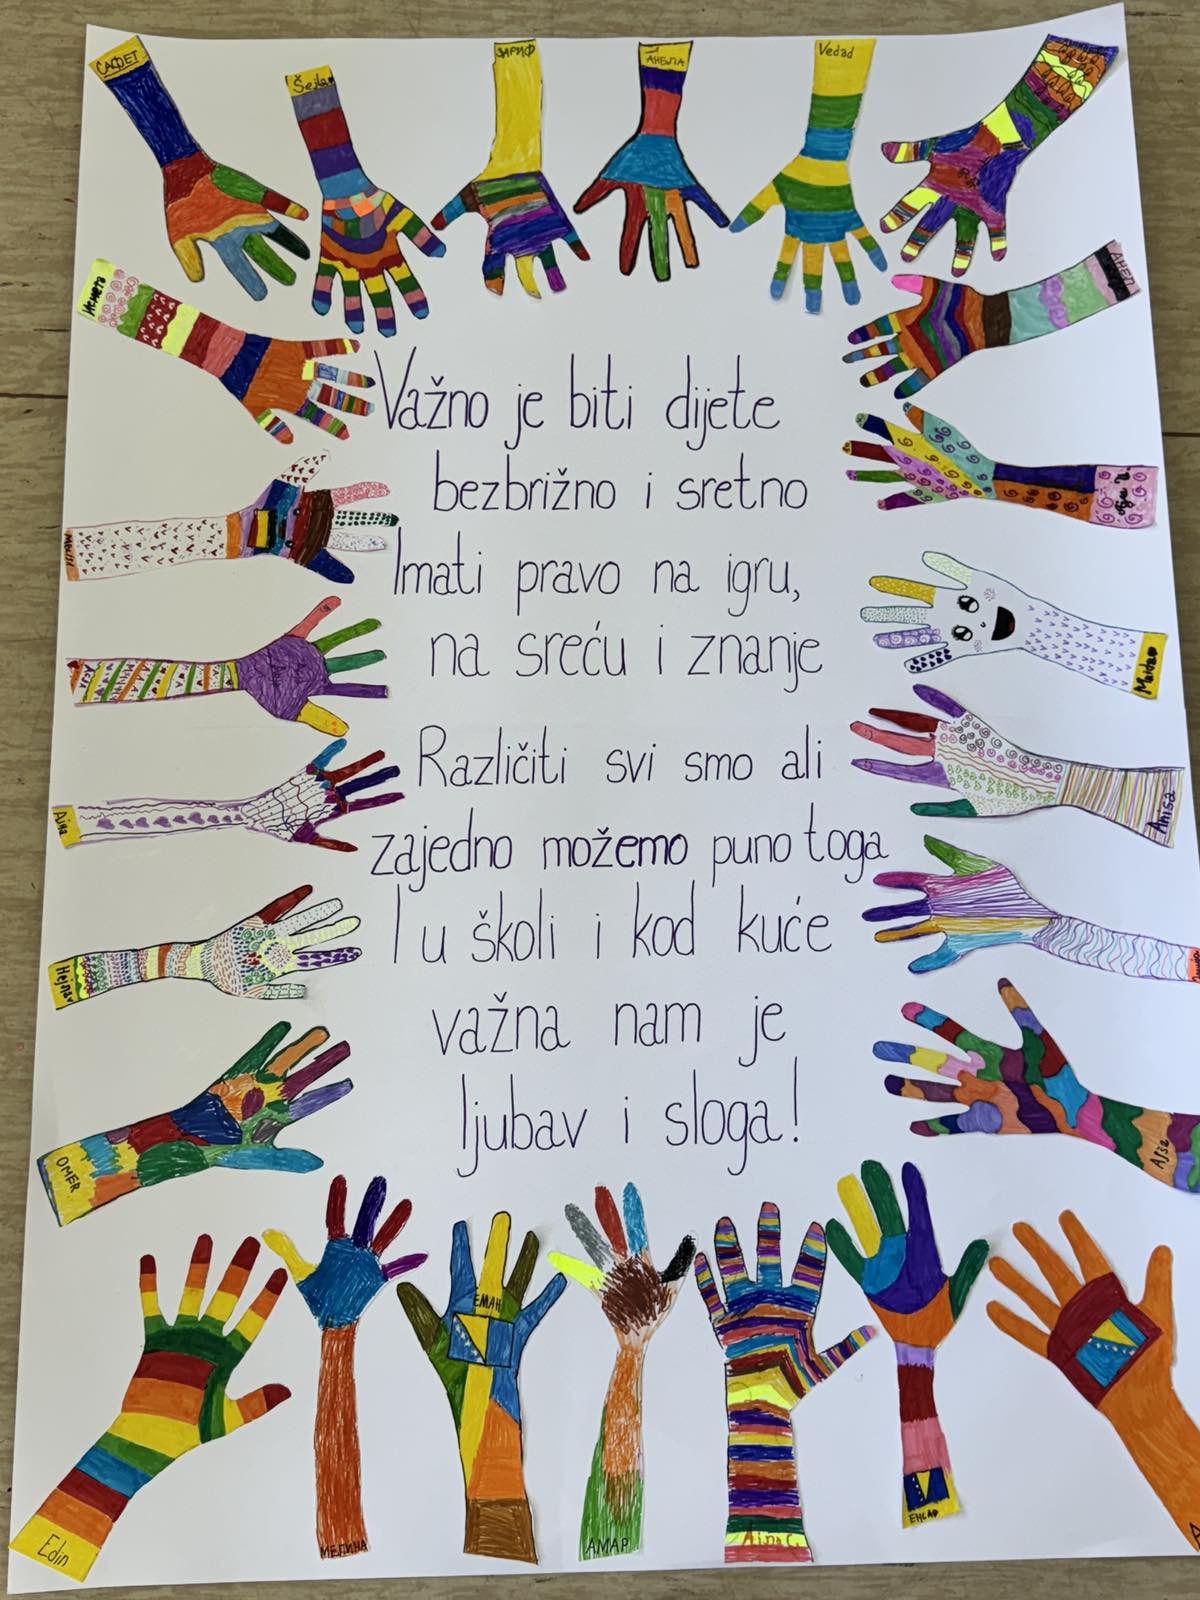 САФЕТ
Šejla
ЗАРИФ
АНЕЛА
Vedad
Важno je biti dijete
bezbrižno i sretno
Imati pravo na igru,
na sreću i znanje
Različiti svi smo ali
zajedno možemo puno toga
I u školi i kod kuće
važna nam je
ljubav i sloga!
Maida
Anisa
Aina
Asja
OMER
ЕМАН
ЕНСАР
Edin
МЕЛИНА
АМАР
Aina G